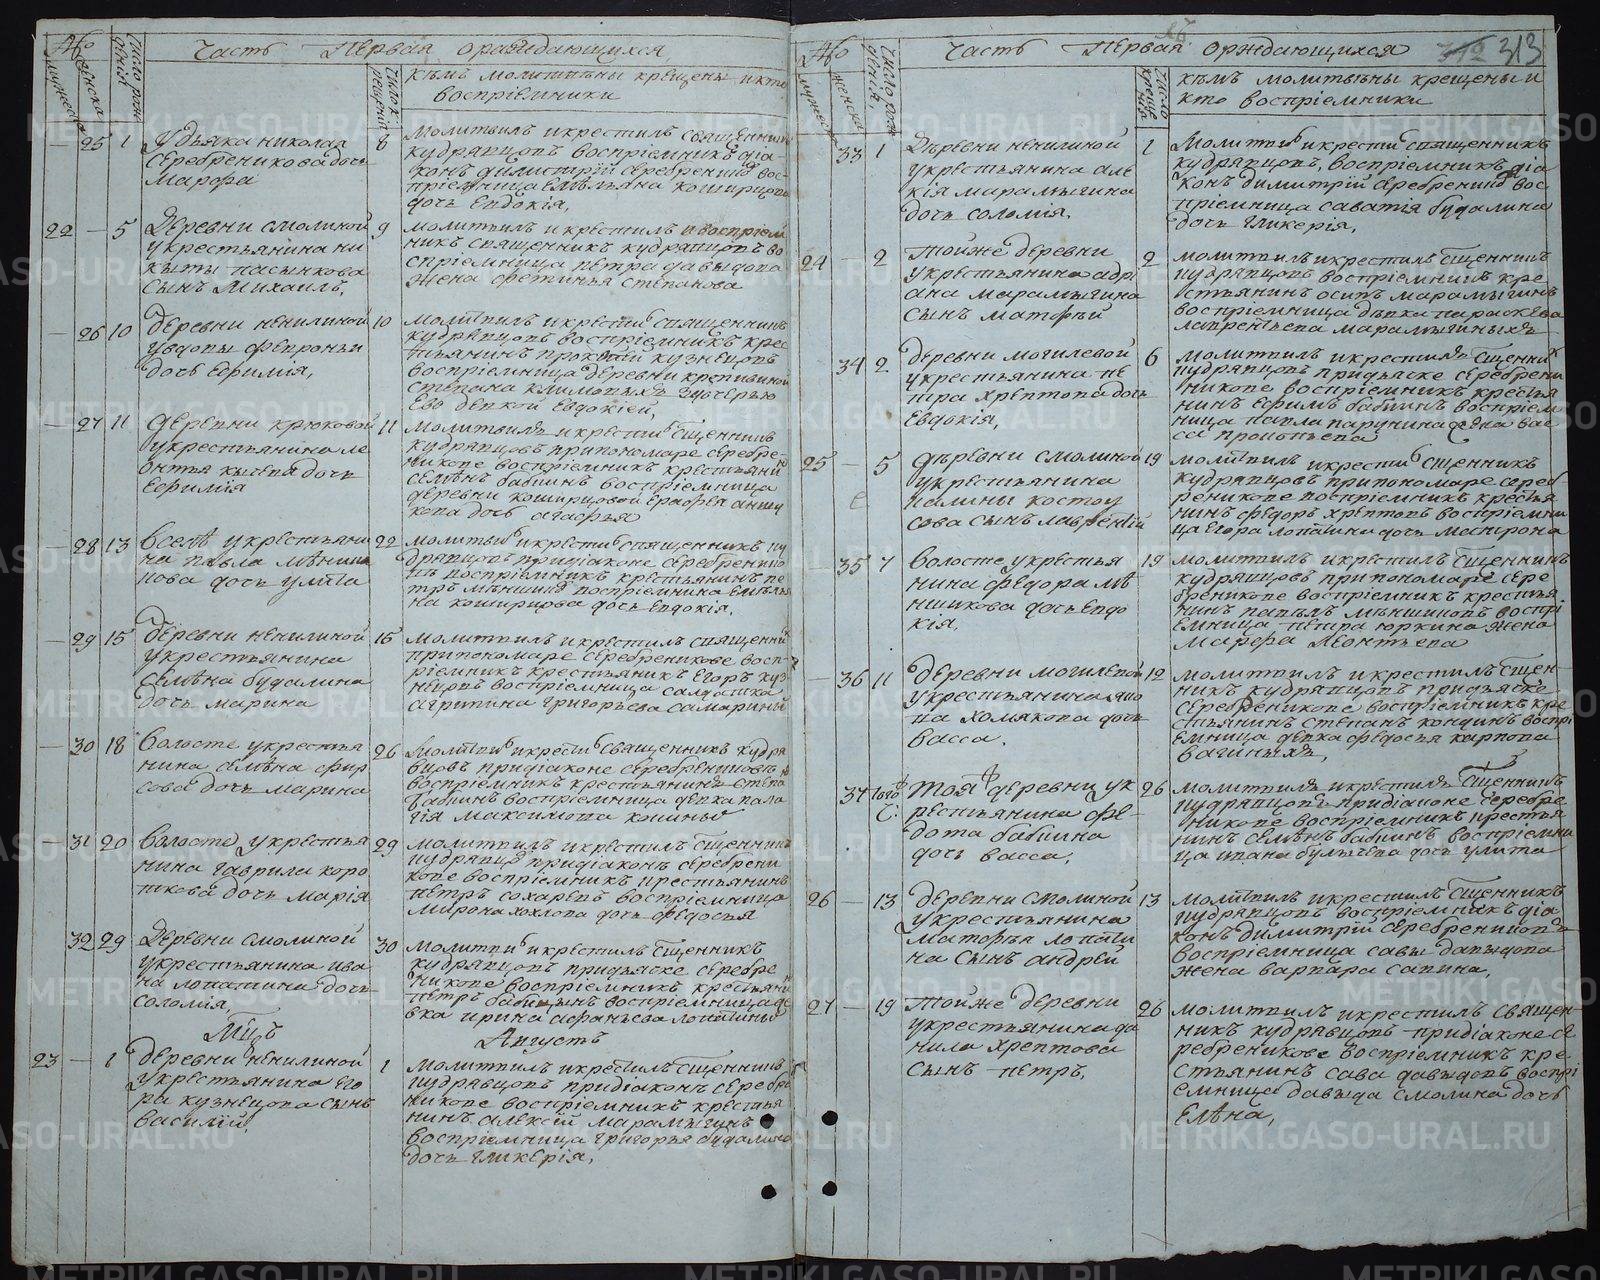 Часть Первая ораждающихся
№
мужеска
женска
Число рож
дения
Число к
рещения
къмъ молитвѣны крещены икто
воспріемники
25 1 У дьяка николая
серебреникова дочь
Марфа
8 молитвилъ икрестилъ священникъ
кудрявцовъ воспріемникъ діа
конъ димитрій серебрениковъ вос
пріемница Емельяна коширцова
дочь Евдокія,
22 5 Деревни смолиной
укрестьянина ни
киты пасынкова
сынъ Михаилъ,
9 молитвилъ и крестилъ и воспріем
никъ священникъ кудрявцовъ во
спріемница петра давыдова
жена фетинья степанова
26 10 Деревни ненилиной
увдовы февроньи
дочь Ефимія,
10 молитвилъ икрести священникъ
кудрявцовъ воспріемникъ крес
тьянинъ прокопій кузнецовъ
воспріемница деревни крапивиной
степана климовыхъ здочерью
Ево девкой Евдокіей,
27 11 деревни крюковой
укрестьянина ле
онтья дочь
Ефимія
11 молитвилъ икрестил сщенникъ
кудрявцовъ припономаре серебре
никове воспріемникъ крестьянин
семенъ бабинъ воспріемница
деревни коширцовой
дочь агафья
28 13 Вселе укрестьяни
на павла мѣнши
кова дочь улита
22 молитвилъ икрестилъ священникъ ку
дрявцовъ придіаконе серебренико
въ воспріемникъ крестьянинъ пе
тръ мѣншиковъ воспріемница Емелья
на коширцова дочь Евдокія,
29 15 Деревни ненилиной
укрестьянина
семена будалина
дочь марина
15 молитвилъ икрестилъ священникъ
припономаре серебреникове восп
ріемникъ крестьянинъ Егоръ куз
нецовъ воспріемница салдатка
агрипина григорьева самарины
30 18 Волосте укрестья
нина семена фир
сова дочь марина
26 Молитвил икрестил священникъ кудря
вцовъ придіаконе серебрениковъ
воспріемникъ крестьянинъ степа
бабинъ воспріемница девка пала
гія максимова
31 20 Волосте укрестья
нина гаврила коро
ткова дочь марія
29 молитвилъ икрестилъ сщенникъ
кудрявцовъ придіаконъ серебрени
кове воспріемникъ крестьянинъ
петръ сохаревъ воспріемница
мирона хохлова дочь федосья
32 29 Деревни смолиной
укрестьянина ива
на лопатина дочь
соломія,
30 молитвил икрестилъ сщенникъ
кудрявцовъ придьячке серебре
никове воспріемникъ крестьяни
петръ бабинъ воспріемница де
вка ирина афанасьева лопатины
Мцъ Августъ
23 1 Деревни ненилиной
укрестьянина Его
ра кузнецова сынъ
василій,
1 Молитвилъ икрестилъ сщенникъ
кудрявцовъ придіаконъ серебре
никове воспріемникъ крестья
нинъ алексій марамыгинъ
воспріемница григорья будалина
дочь гликерія,
Часть Первая орждающихся
313
№
мужеска
женска
число рож
дения
Число
креще
ния
къмъ молитвѣны крещены и
кто воспріемники
33 1 Деревни ненилиной
укрестьянина але
кія марамыгина
дочь соломія,
1 Молитвил икрестил священникъ
кудрявцовъ, воспріемникъ діа
конъ димитрій серебрениковъ вос
пріемница саватія будалина
дочь гликерія,
24 2 тойже деревни
укрестьянина адрі
ана марамыгина
сынъ матфей
2 молитвилъ икрестилъ сщенникъ
кудрявцовъ воспріемникъ кре
стьянинъ осипъ марамыгинъ
воспріемница девка параскева
лаврентьева марамыгиныхъ
34 2 деревни могилевой
укрестьянина пе
тра хрептова дочь
Евдокія,
6 молитвилъ икрестилъ сщенникъ
кудрявцовъ придьячке серебрени
никове воспріемникъ крестья
нинъ Ефимъ бабинъ воспріем
ница павла паручина жена вас
са прокопьева
25 5 деревни смолиной
укрестьянина
костоу
сова сынъ лаврентій
19 молитвилъ икрестил сщенникъ
кудрявцовъ припономаре сереб
реникове воспріемникъ крестья
нинъ федоръ хрептовъ воспріемни
ца Егора лопатина дочь матрона
35 7 Волосте укрестья
нина федора мѣ
ншикова дочь Евдо
кія,
19 молитвилъ икрестилъ сщенникъ
кудрявцовъ припономаре сере
бреникове воспріемникъ крестья
нинъ павелъ мѣншиковъ воспрі
емница петра юркина жена
марфа леонтьева
36 11 деревни могилевой
укрестьянина
хомякова дочь
васса,
12 молитвилъ икрестилъ сщен
никъ кудрявцовъ придьячке
серебреникове воспріемникъ кре
стьянинъ степанъ кондинъ воспрі
емница девка федосья карпова
вагиныхъ,
37 того ч: Тоя деревни ук
рестьянина фе
дота бабина
дочь васса,
26 молитвилъ икрестилъ сщенникъ
кудрявцовъ придіаконе серебре
никове воспріемникъ крестья
нинъ семенъ бабинъ воспріемни
ца ивана булычева дочь улита
26 13 Деревни смолиной
укрестьянина
матфея лопати
на сынъ андрей
13 молитвилъ икрестилъ сщенникъ
кудрявцовъ воспріемникъ діа
конъ димитрій серебрениковъ
воспріемница савы давыдова
жена варвара савина,
27 19 тойже деревни
укрестьянина да
нила хрептова
сынъ петръ,
26 молитвилъ икрестилъ священ
никъ кудрявцовъ придіаконе се
ребреникове воспріемникъ кре
стьянинъ сава давыдовъ воспрі
емница давыда смолина дочь
Елена,
METRIKI.GASO-URAL.RU